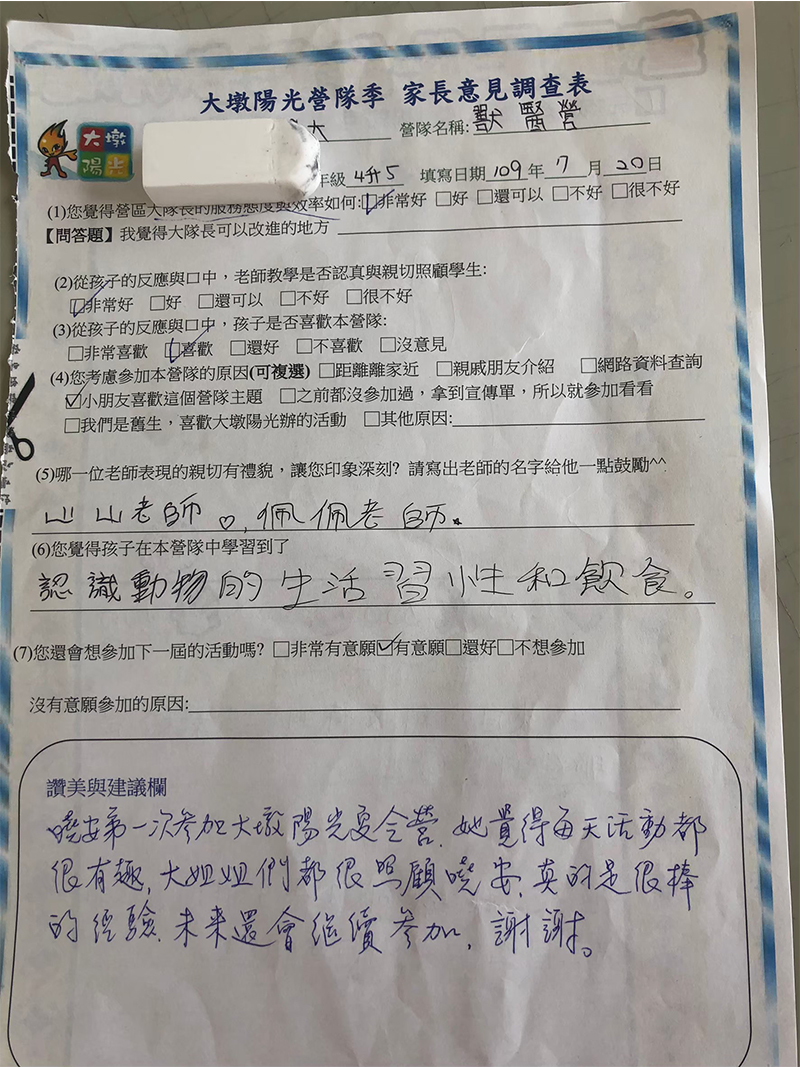 大墩陽光營隊季 家長意見調查表
大墩
陽光
大 營隊名稱:獸醫營
年級 4升5 填寫日期 109 年 7 月 20 日
(1)您覺得營區大隊長的服務態度與效率如何:☑非常好 □好 □還可以 □不好 □很不好
【問答題】我覺得大隊長可以改進的地方
(2)從孩子的反應與口中，老師教學是否認真與親切照顧學生:
☑非常好 □好 □還可以 □不好 □很不好
(3)從孩子的反應與口中，孩子是否喜歡本營隊:
□非常喜歡 ☑喜歡 □還好 □不喜歡 □沒意見
(4)您考慮參加本營隊的原因(可複選) □距離離家近 □親戚朋友介紹 □網路資料查詢
☑小朋友喜歡這個營隊主題 □之前都沒參加過，拿到宣傳單，所以就參加看看
□我們是舊生，喜歡大墩陽光辦的活動 □其他原因:
(5)哪一位老師表現的親切有禮貌，讓您印象深刻? 請寫出老師的名字給他一點鼓勵^^
山山老師♡, 佩佩老師.
(6)您覺得孩子在本營隊中學習到了
認識動物的生活習性和飲食。
(7)您還會想參加下一屆的活動嗎? □非常有意願☑有意願□還好□不想參加
沒有意願參加的原因:
讚美與建議欄
曉安第一次參加大墩陽光夏令營, 她覺得每天活動都
很有趣, 大姐姐們都很照顧曉安, 真的是很棒
的經驗, 未來還會繼續參加, 謝謝。